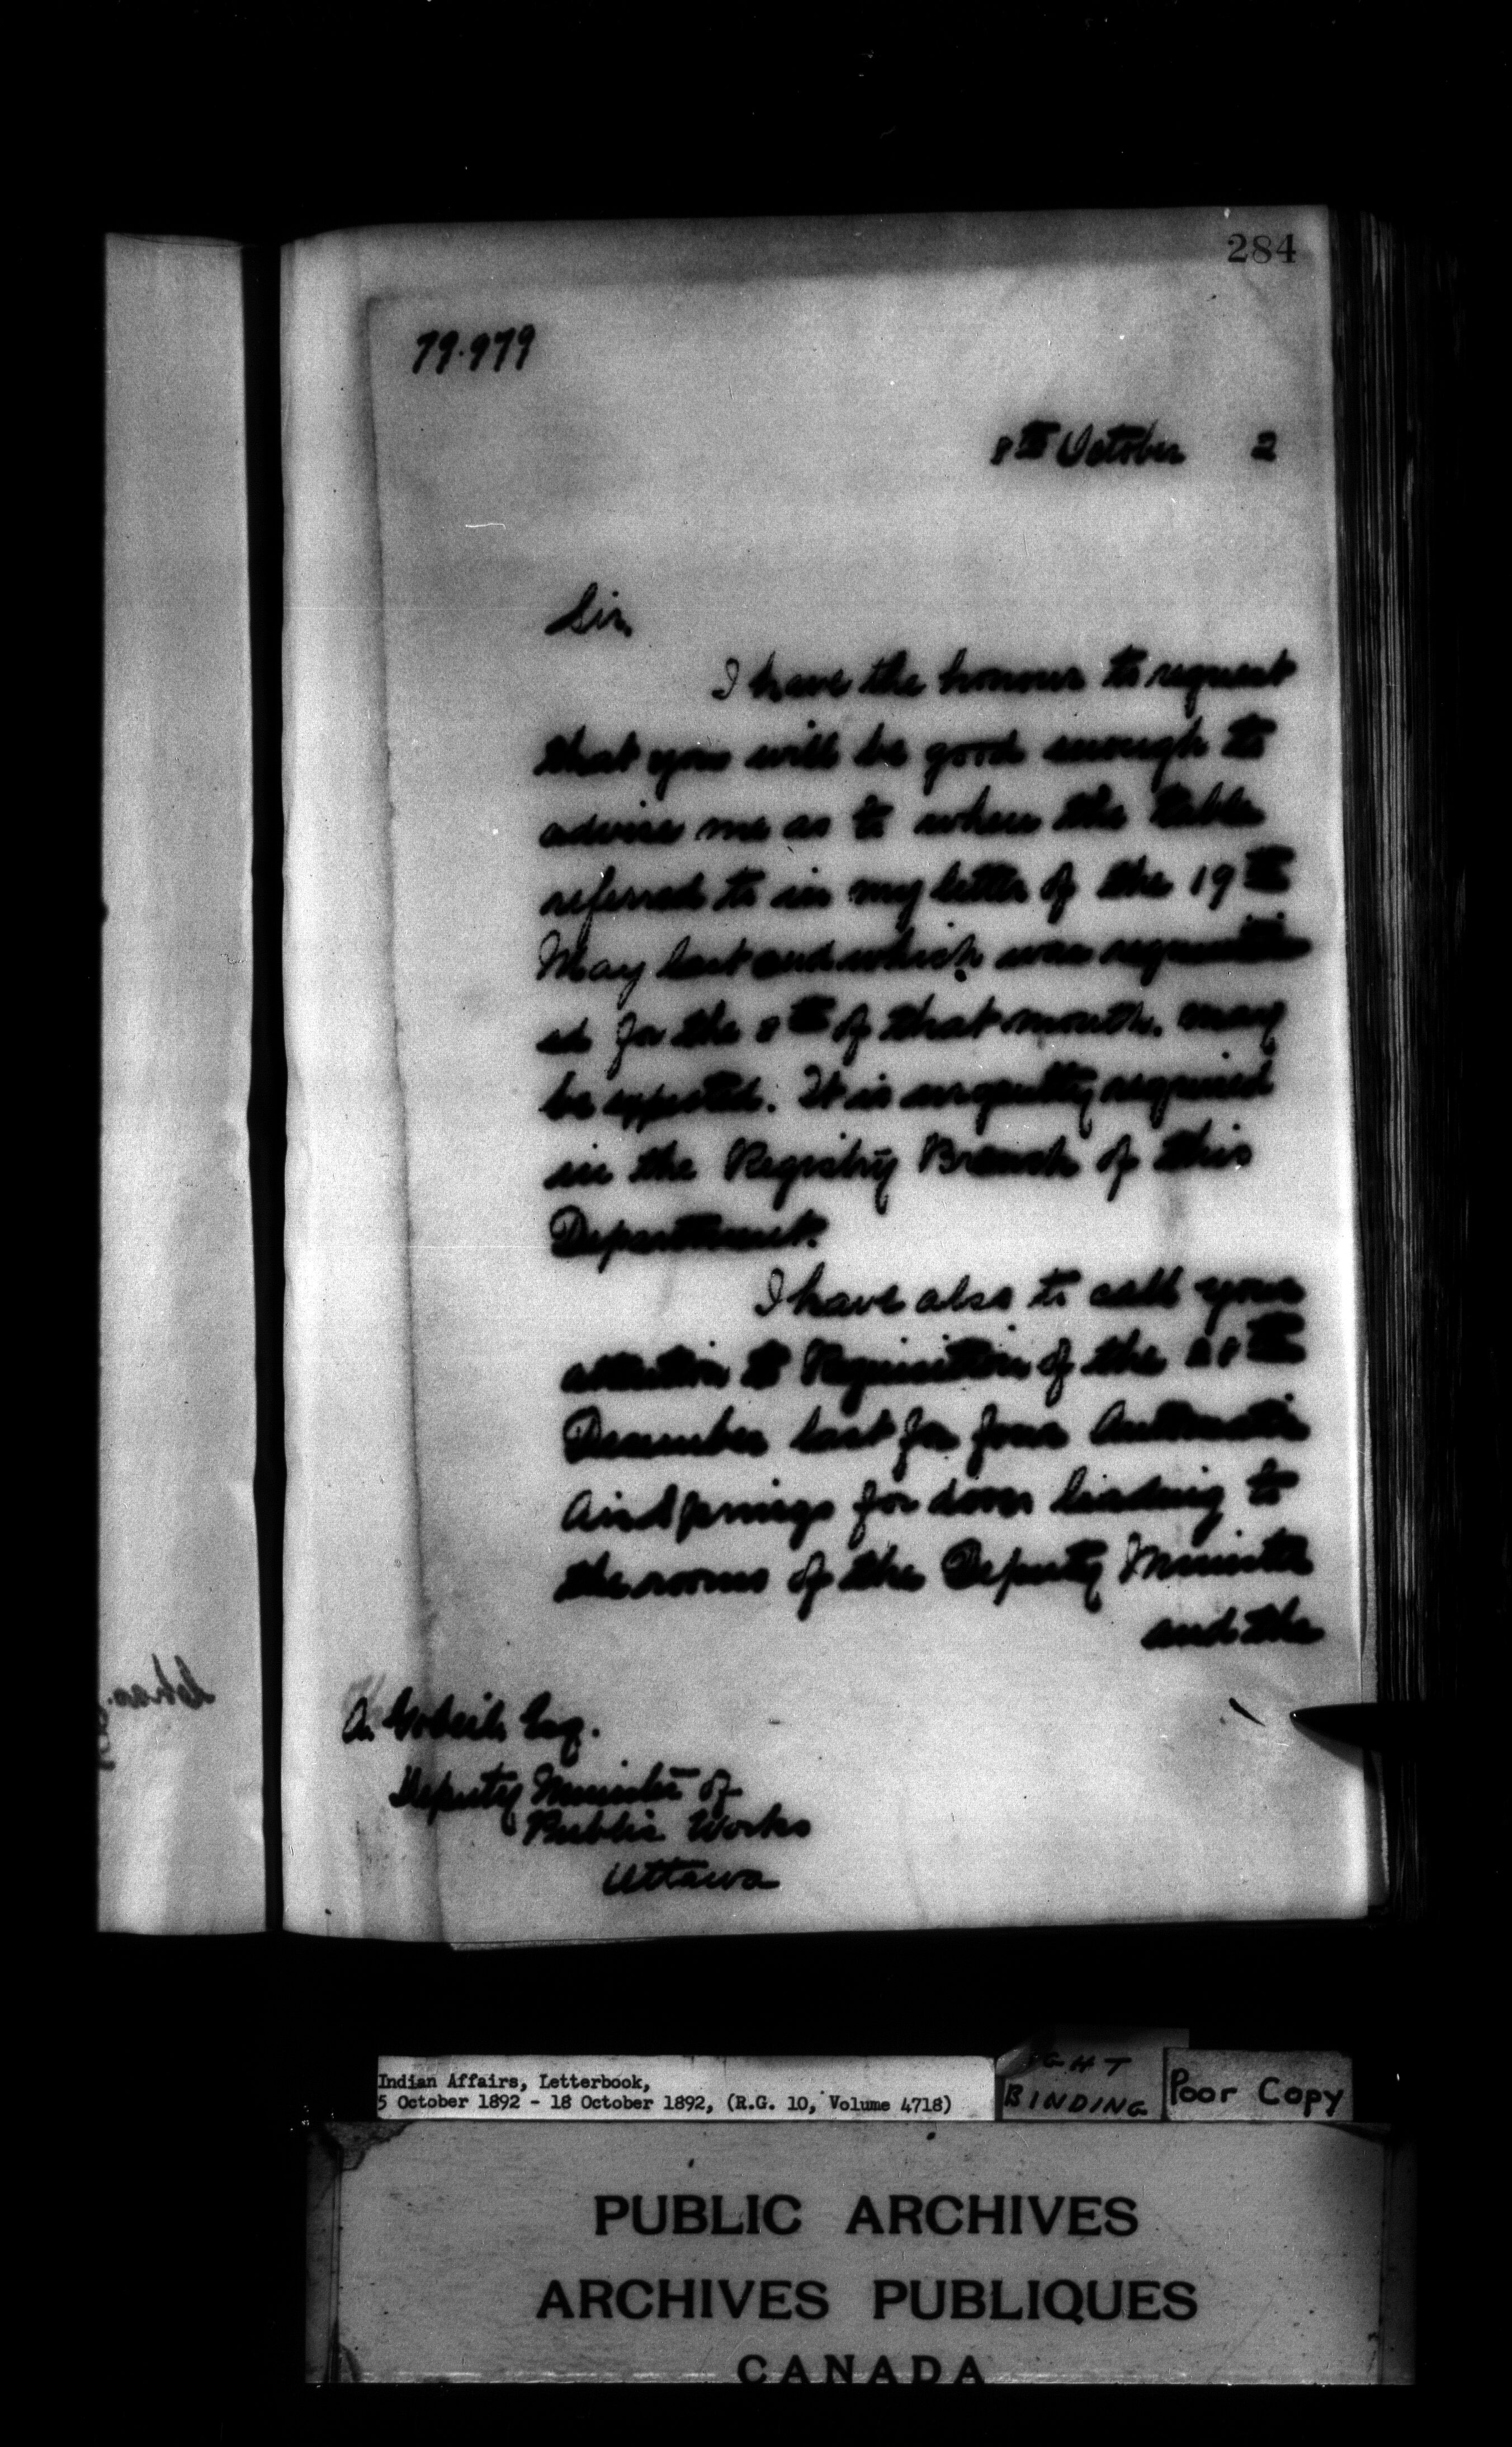 284
79.979
8th October 2
Sir,
I have the honour to request
that you will be good enough to
advise me as to when the table
referred to in my letter of the 19th
May last and which was requisition
ed for the 8th of that month, may
be expected. It is urgently required
in the Registry Branch of this
Department.
I have also to call your
attention to Requisition of the 28th
December last for four Automatic
Air Springs for doors leading to
the rooms of the Deputy Minister
and the
A. Gobeil, Esq.
Deputy Minister of
Public Works
Ottawa
Indian Affairs, Letterbook,
5 October 1892 - 18 October 1892, (R.G. 10, Volume 4718)
BINDING
Poor Copy
PUBLIC ARCHIVES
ARCHIVES PUBLIQUES
CANADA